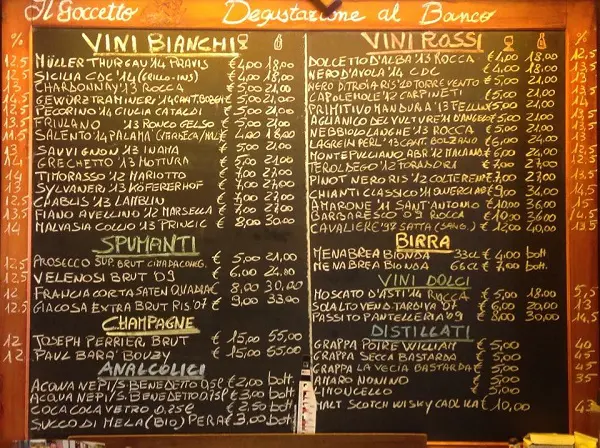 Il Goccetto Degustazione al Banco
VINI BIANCHI
% MÜLLER THURGAU '14 PRAVIS € 4,00 18,00
12,5 SICILIA CDC '14 (GRILLO-INS) € 4,00 18,00
CHARDONNAY '13 ROCCA € 5,00 21,00
GEWÜRZTRAMINER '14 CANT. € 5,00 21,00
PECORINO '14 GIULIA CATALDI € 5,00 21,00
FRIULANO '13 BORGO GELSO € 5,00 21,00
SALENTO '14 PALAMA € 4,00 18,00
SAUVIGNON '13 INAMA € 5,00 27,00
GRECHETTO '13 MOTTURA € 5,00 21,00
TIMORASSO '12 MARIOTTO € 7,00 27,00
SYLVANER '13 KÖFERERHOF € 7,00 27,00
CHABLIS '13 LAMBLIN € 7,00 27,00
FIANO AVELLINO '12 MARSELLA € 7,00 27,00
MALVASIA COLLIO '13 € 8,00 30,00
SPUMANTI
12,5 PROSECCO SUP. BRUT € 5,00 21,00
12,5 VELENOSI BRUT '09 € 6,00 24,00
12 FRANCIACORTA SATEN € 8,00 30,00
12,5 GIACOSA EXTRA BRUT RIS '07 € 9,00 33,00
CHAMPAGNE
12 JOSEPH PERRIER BRUT € 15,00 55,00
12 PAUL BARA' BOUZY € 15,00 55,00
ANALCOLICI
ACQUA NEPI/S. BENEDETTO 0,5L € 2,00 bott.
ACQUA NEPI/S. BENEDETTO € 3,00 bott.
COCA COLA VETRO 0,25L € 2,50 bott.
SUCCO DI MELA (BIO) PERA € 3,00 bott.
VINI ROSSI
%
DOLCETTO D'ALBA '13 ROCCA € 4,00 18,00
NERO D'AVOLA '14 CDC € 4,00 18,00
NERO DI TROIA RIS '10 TORREVENTO € 5,00 21,00
CAPOLEMOLE '12 CARPINETI € 5,00 21,00
PRIMITIVO MANDURIA '13 FELLINE € 5,00 21,00
AGLIANICO DEL VULTURE '11 D'ANGELO € 5,00 21,00
NEBBIOLO LANGHE '13 ROCCA € 5,00 21,00
LAGREIN PERL '13 CANT. BOLZANO € 6,00 24,00
MONTEPULCIANO ABR '12 € 6,00 24,00
TEROLDEGO '12 € 7,00 27,00
PINOT NERO RIS '12 COLTERENZ € 7,00 27,00
CHIANTI CLASSICO '11 € 9,00 34,00
AMARONE '11 SANT'ANTONIO € 10,00 36,00
BARBARESCO '09 ROCCA € 10,00 36,00
CAVALIERE '98 SATTA (SANG.) € 12,00 40,00
BIRRA
MENABREA BIONDA 33cl € 4,00 bott.
MENABREA BIONDA 66cl € 7,00 bott.
VINI DOLCI
MOSCATO D'ASTI '14 ROCCA € 5,00 18,00 5,5
SOLALTO VEND. TARDIVA '07 € 6,00 20,00 13
PASSITO PANTELLERIA '09 € 8,00 30,00 14,5
DISTILLATI
GRAPPA POIRE WILLIAM € 5,00 40
GRAPPA SECCA BASTARDA € 5,00 45
GRAPPA LA VECIA BASTARDA € 5,00 45
AMARO NONINO € 5,00 35
LIMONCELLO € 5,00
MALT SCOTCH WISKY CAOL ILA € 10,00 43